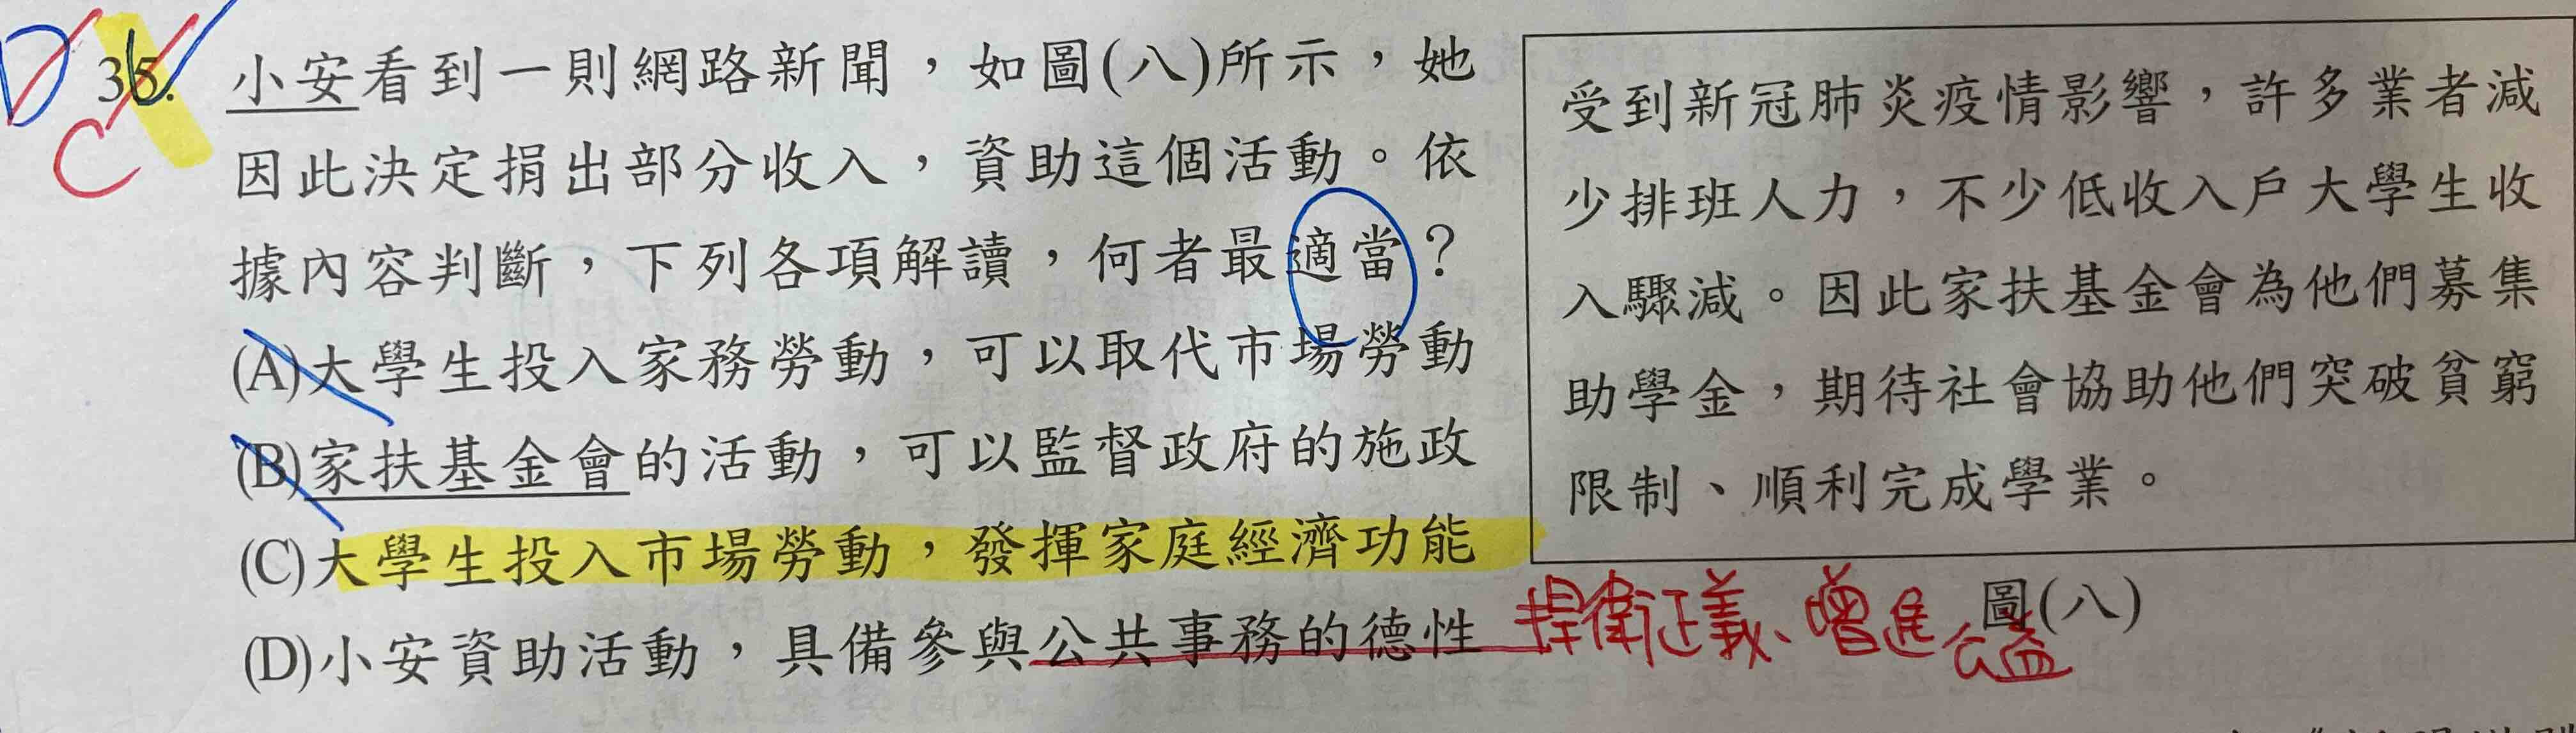 D
C
35. 小安看到一則網路新聞，如圖(八)所示，她
因此決定捐出部分收入，資助這個活動。依
據內容判斷，下列各項解讀，何者最適當？
(A)大學生投入家務勞動，可以取代市場勞動
(B)家扶基金會的活動，可以監督政府的施政
(C)大學生投入市場勞動，發揮家庭經濟功能
(D)小安資助活動，具備參與公共事務的德性
捍衛正義、增進公益
受到新冠肺炎疫情影響，許多業者減
少排班人力，不少低收入戶大學生收
入驟減。因此家扶基金會為他們募集
助學金，期待社會協助他們突破貧窮
限制、順利完成學業。
圖(八)